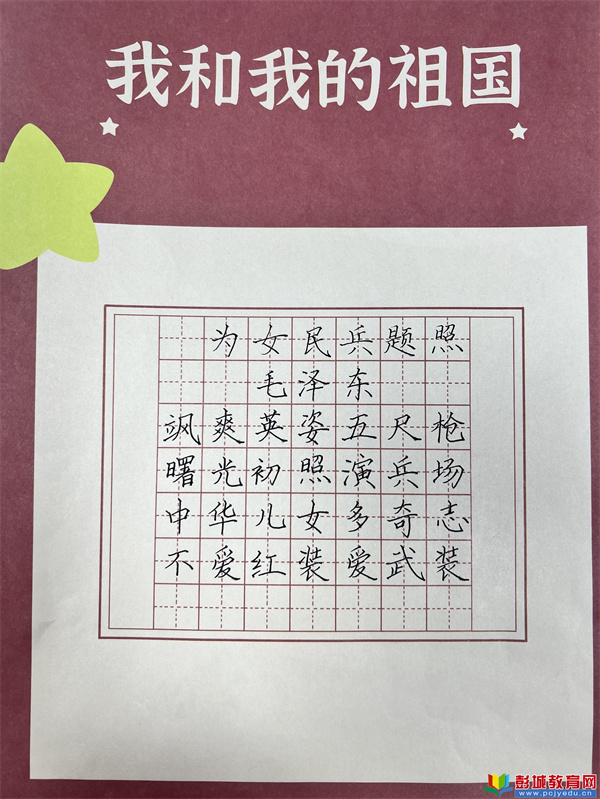 我和我的祖国
为女民兵题照
毛泽东
飒爽英姿五尺枪
曙光初照演兵场
中华儿女多奇志
不爱红装爱武装
彭城教育网
www.pcjyedu.cn